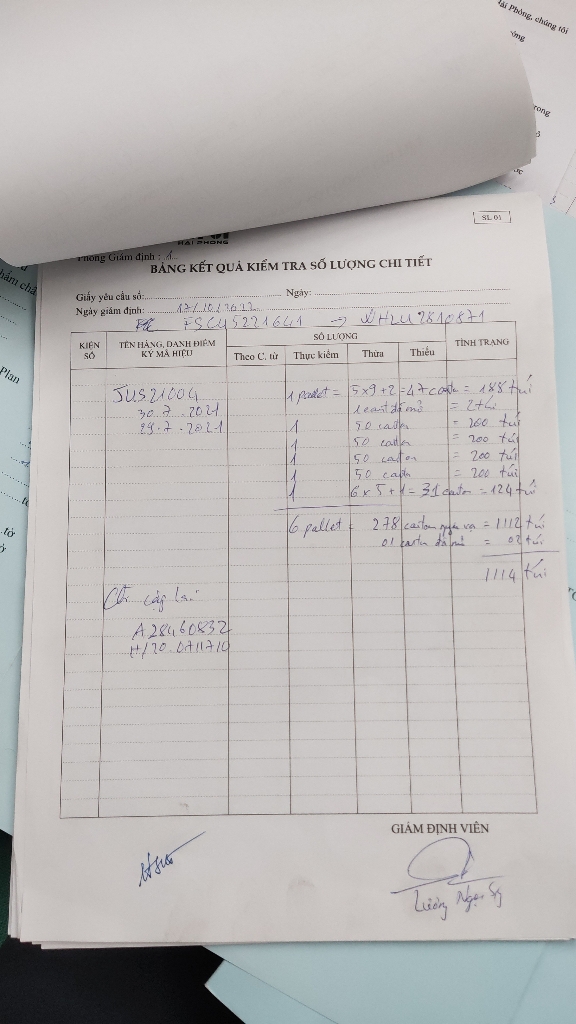 Hải Phòng, chúng tôi
SL 01
HẢI PHÒNG
Phòng Giám định : 1
BẢNG KẾT QUẢ KIỂM TRA SỐ LƯỢNG CHI TIẾT
Giấy yêu cầu số: Ngày:
Ngày giám định: 17/10/2022
FSCU5221641 → WHLU2810871
KIỆN SỐ
TÊN HÀNG, DANH ĐIỂM KÝ MÃ HIỆU
SỐ LƯỢNG
TÌNH TRẠNG
Theo C. từ Thực kiểm Thừa Thiếu
JUS2100G 1 pallet = 5x9+2=47 carton = 188 túi
30.7.2021 1 cart đã mở = 2 túi
29.7.2021 1 50 carton = 200 túi
1 50 carton = 200 túi
1 50 carton = 200 túi
1 50 carton = 200 túi
1 6x5+1=31 carton = 124 túi
6 pallet = 278 carton nguyên vẹn = 1112 túi
01 carton đã mở = 02 túi
1114 túi
A28460832
H/20.0711710
GIÁM ĐỊNH VIÊN
Lương Ngọc Sỹ
Plan